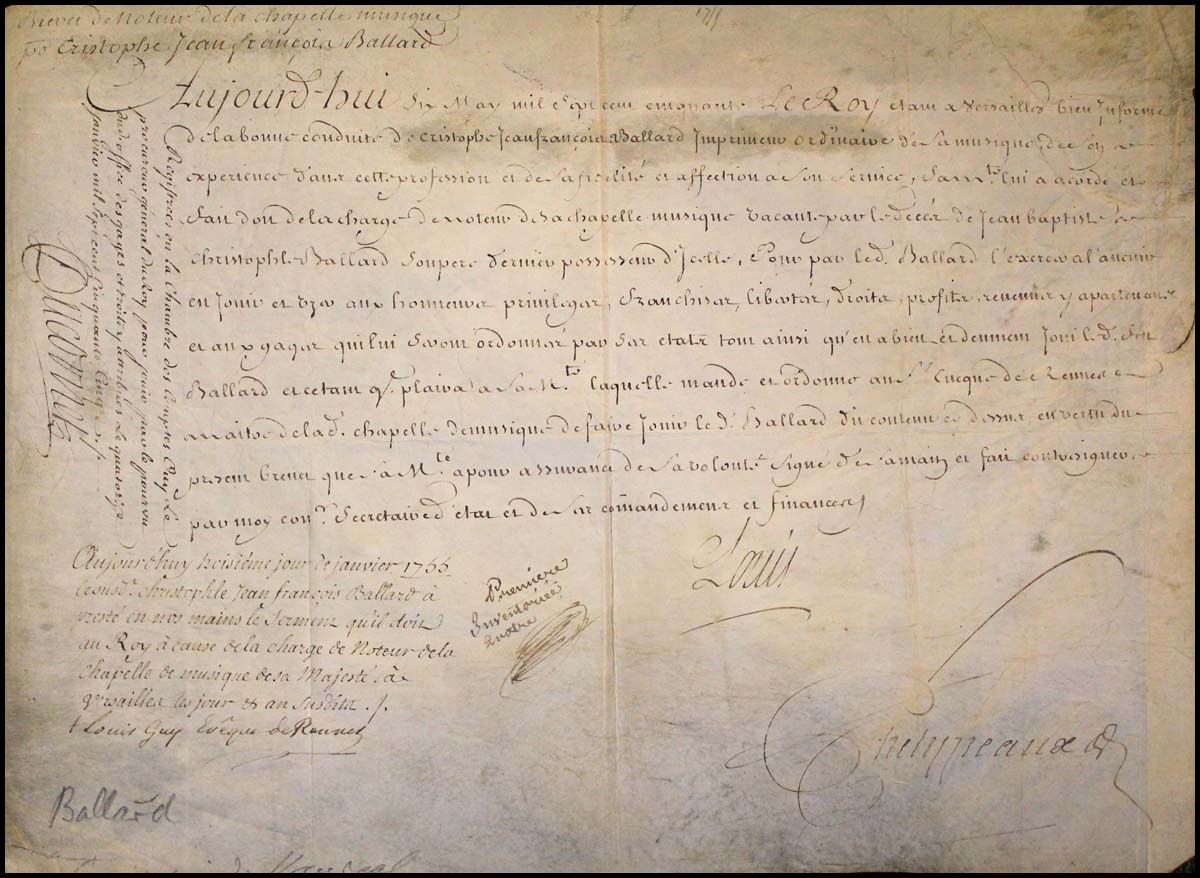 Brevet de Noteur de la chapelle musique
po Cristophe Jean françois Ballard
Aujourd-hui Six May mil sept cent cinquante Le Roy etant a Versailles, bien Informé
de la bonne conduite de Cristophe Jean françois Ballard Imprimeur ordinaire de sa musique, de son
experience dans cette profession et de sa fidelité et affection a son service, Sa M.té lui a acordé et
fait don de la charge de Noteur de sa chapelle musique vacante par le décés de Jean baptiste
Christophle Ballard son pere dernier possesseur d'Icelle, Pour par led. Ballard l'exercer a l'avenir
en Jouir et user aux honneurs privileges, franchises, libertés, droits, profits, revenues y apartenans
et aux gages qui lui seront ordonnés par ses etats tout ainsi qu'en a bien et deument Joui led. feu
Ballard et ce tant q. plaira a Sa M.té laquelle mande et ordonne au S. Eveque de Rennes
Maitre de lad. chapelle de musique de faire Jouir led. Ballard du contenu cy dessus en vertu du
present brevet que Sa M.té a pour assurance de sa volonté Signé de sa main et fait contresigner
par moy con.er Secretaire d'état et de ses comandemens et finances
Louis
Phelypeaux
Registrés en la Chambre des Comptes Ouy Le
procureur général du Roy pour jouir par le pourvu
dud. office des gages et droits y attribués Le quatorze
janvier mil sept cent Cinquante Cinq
Ducornet
Aujourd'huy troisième jour de janvier 1755
le susd. Christophle Jean françois Ballard à
presté en nos mains le serment qu'il doit
au Roy à cause de la charge de Noteur de la
Chapelle de musique de sa Majesté. à
Versailles les jour & an susdits ./.
† Louis Guy Evêque de Rennes
Premiere
Inventoriée
quatre
Ballard